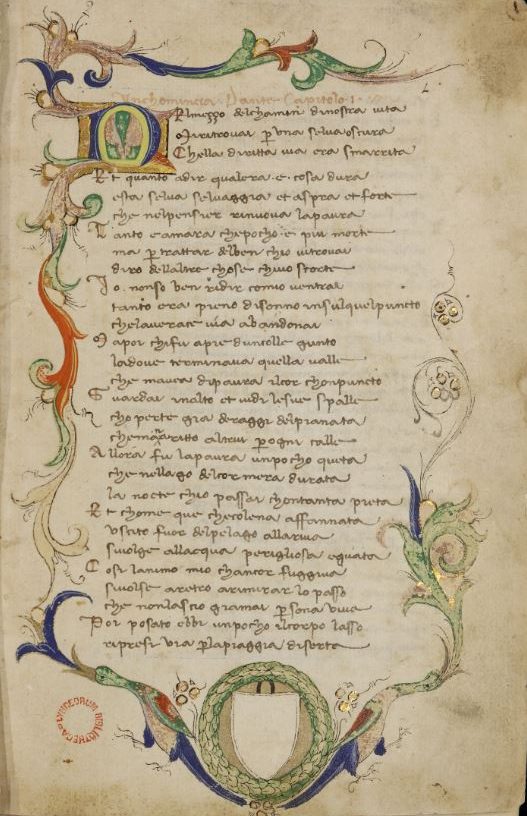 Inchomincia Dante Capitolo · 1 ·
Nelmezzo delchamin dinostra vita
Miritrovai p una selva oscura
Chella diritta via era smarrita
Et quanto adir qualera e cosa dura
esta selva selvaggia et aspra et forte
che nelpensier rinuova lapaura
Tanto e amara chepocho e piu morte
ma p trattar delben chio vitrovai
diro dellaltre chose chivio scorte
Io nonso ben ridir comio ventrai
tanto era pieno disonno insulquelpuncto
chelaverace via abandonai
Mapoi chifu apie duncolle giunto
ladove terminava quella valle
che mavea dipaura ilcor chonpuncto
Guardai inalto et vidi lesue spalle
gia deraggi delpianata
altrui p ogni calle
Allora fu lapaura unpocho queta
che nellago delcor mera durata
la nocte chio passai chontanta pieta
Et chome que checolena affannata
uscito fuor delpelago allariva
sivolge allacqua perigliosa eguata
Cosi lanimo mio chancor fuggiva
sivolse aretro arimirar lo passo
che nonlascio giamai p sona viva
Poi posato ebbi unpocho ilcorpo lasso
ripresi via p lapiaggia diserta
LYNCEORUM BIBLIOTHECA